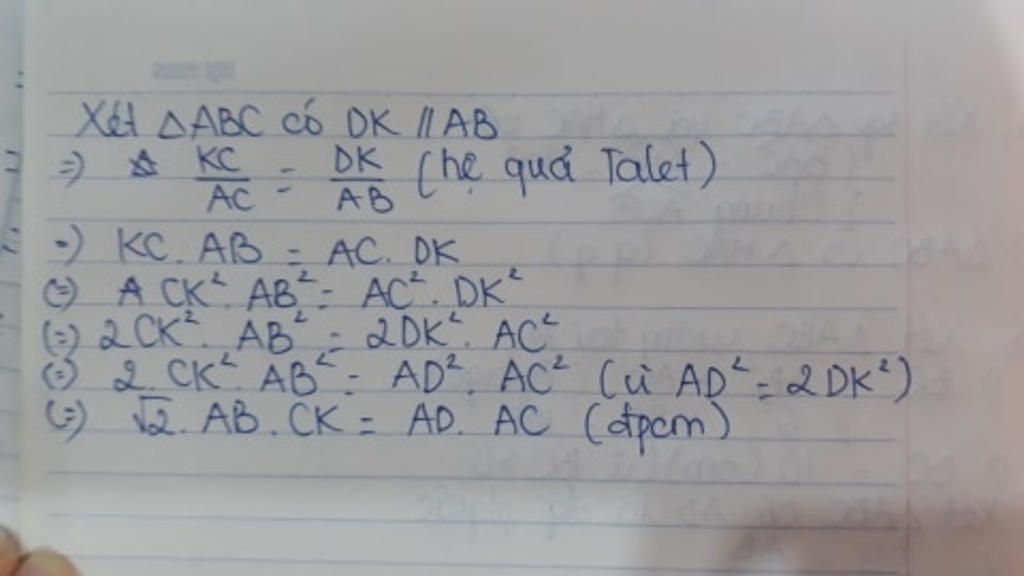 Xét △ABC có DK // AB
=) KC/AC = DK/AB (hệ quả Talet)
=) KC. AB = AC. DK
(=) CK². AB² = AC². DK²
(=) 2CK². AB² = 2DK². AC²
(=) 2. CK². AB² = AD². AC² (vì AD² = 2DK²)
(=) √2. AB. CK = AD. AC (đpcm)